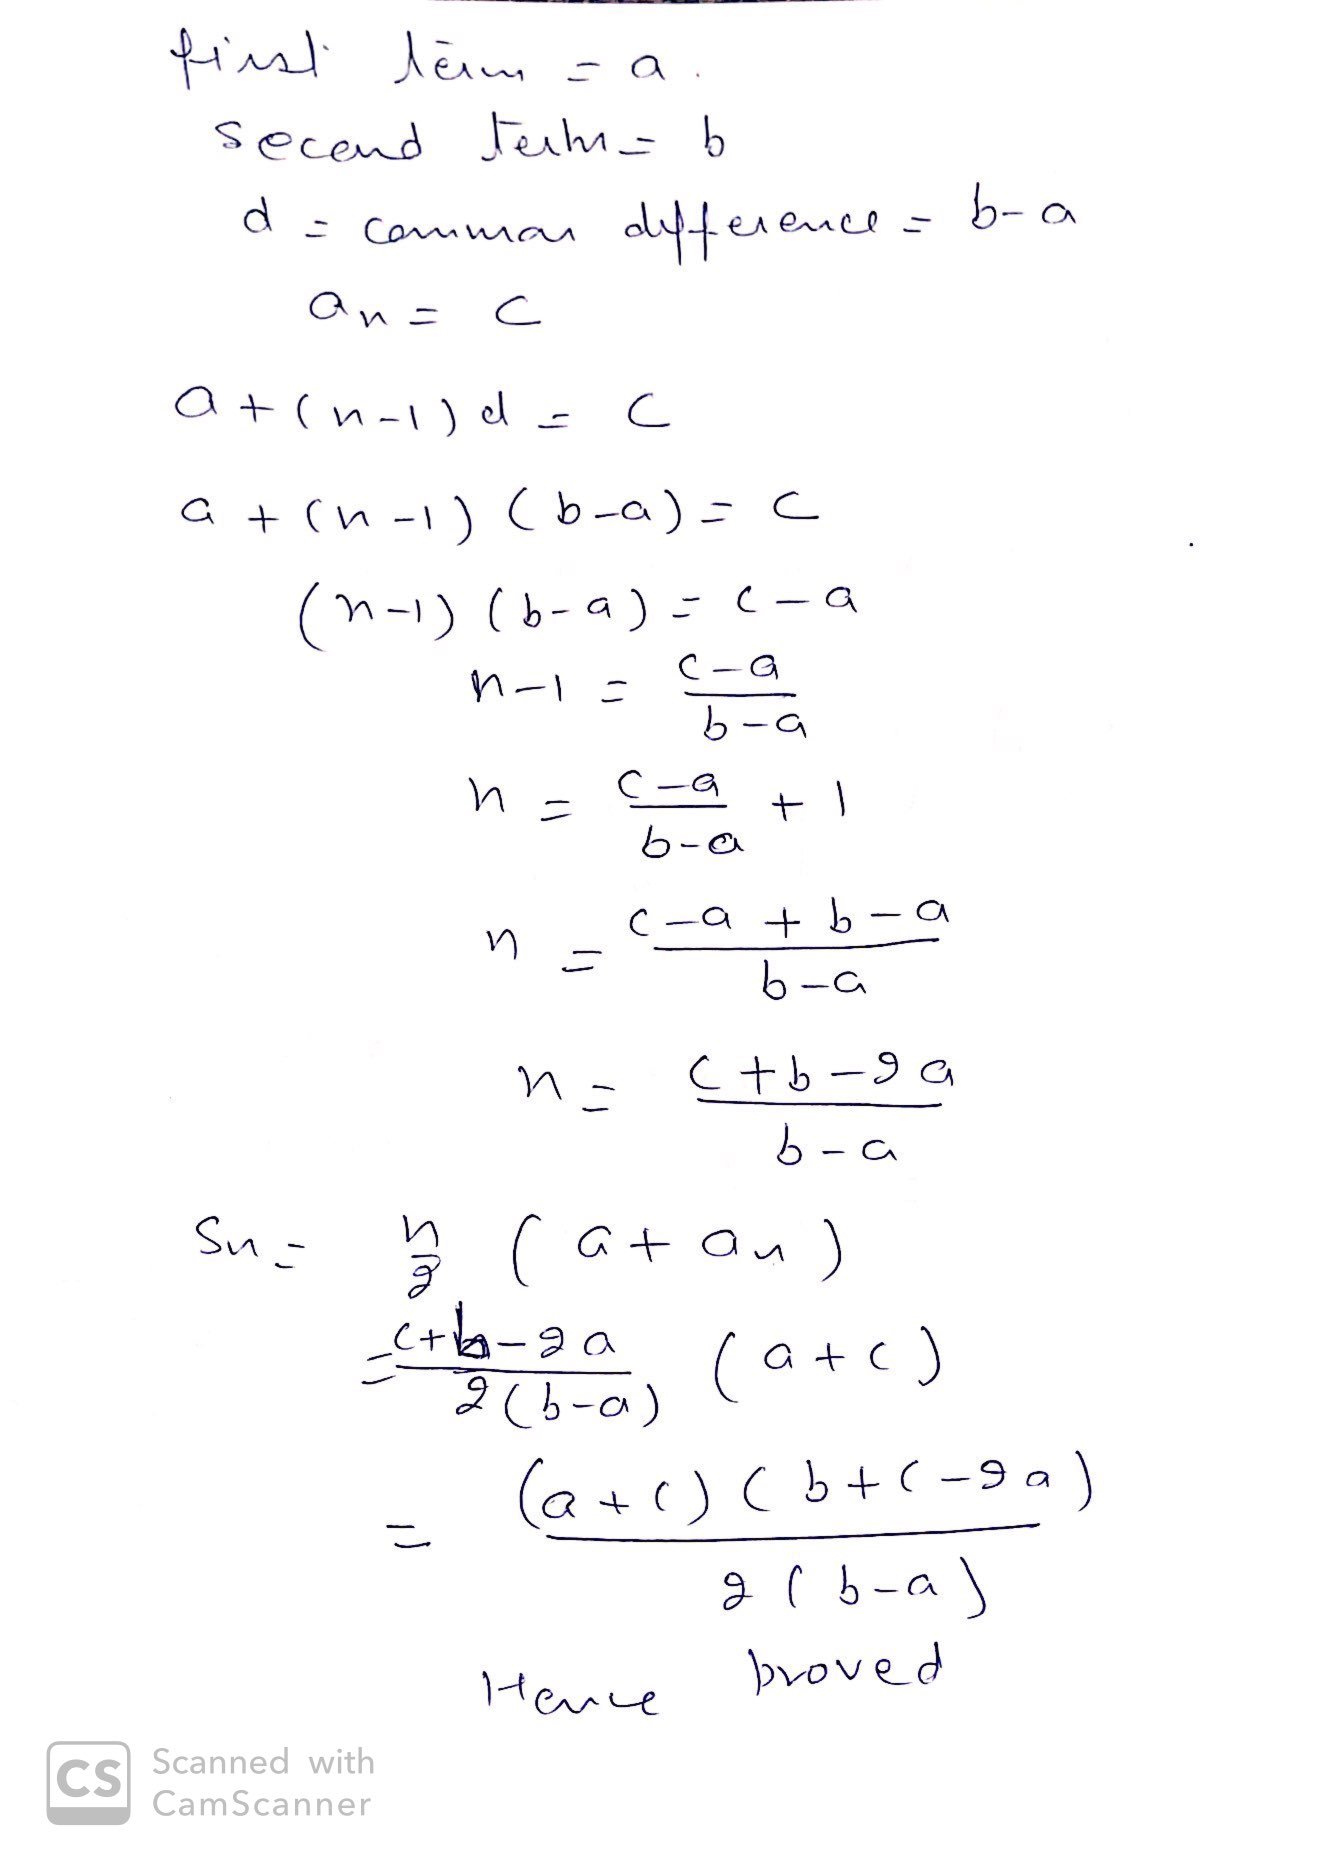 first term = a.
second term = b
d = common difference = b-a
an = c
a + (n-1) d = c
a + (n-1) (b-a) = c
(n-1) (b-a) = c-a
n-1 = c-a / b-a
n = c-a / b-a + 1
n = c-a + b-a / b-a
n = c+b-2a / b-a
Sn = n/2 (a + an)
= c+b-2a / 2(b-a) (a+c)
= (a+c) (b+c-2a) / 2(b-a)
Hence proved
CS Scanned with
CamScanner